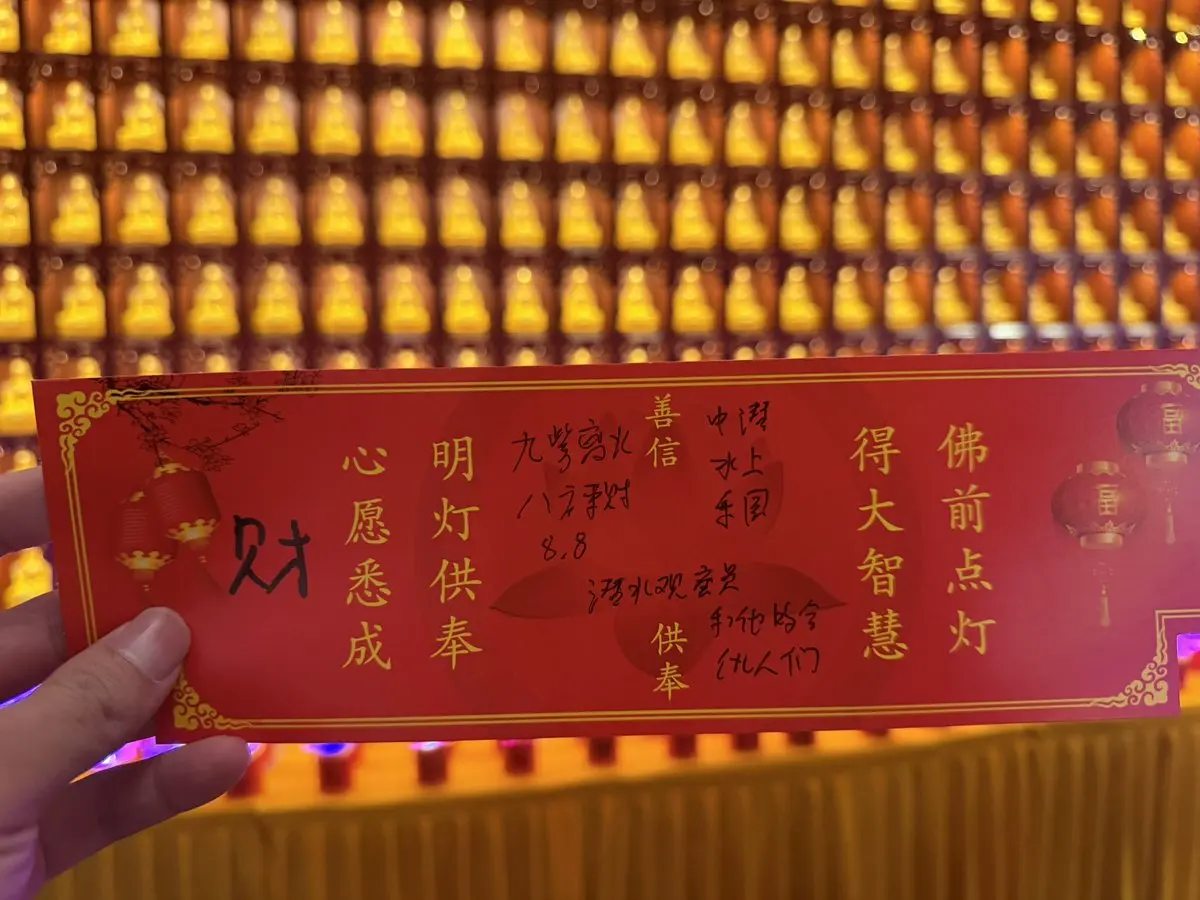 福
福
佛前点灯
得大智慧
中潜
水上
乐园
善信
九紫离火
八方来财
8.8
潜水观察员
和他的合
伙人们
供奉
明灯供奉
心愿悉成
财